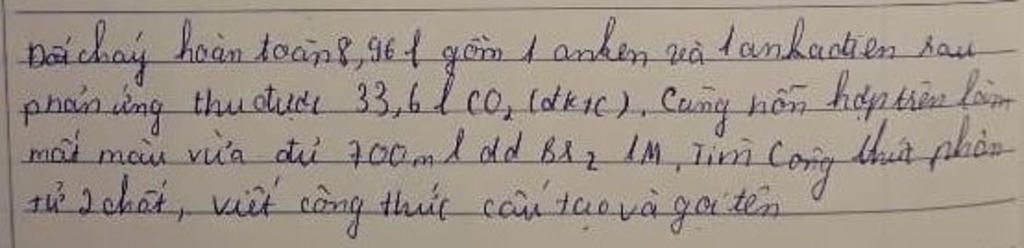 Đốt cháy hoàn toàn 8,96 l gồm 1 anken và 1 ankađien sau
phản ứng thu được 33,6 l CO₂ (đktc). Cũng hỗn hợp trên làm
mất màu vừa đủ 700 ml dd Br₂ 1M. Tìm Công thức phân
tử 2 chất, viết công thức cấu tạo và gọi tên